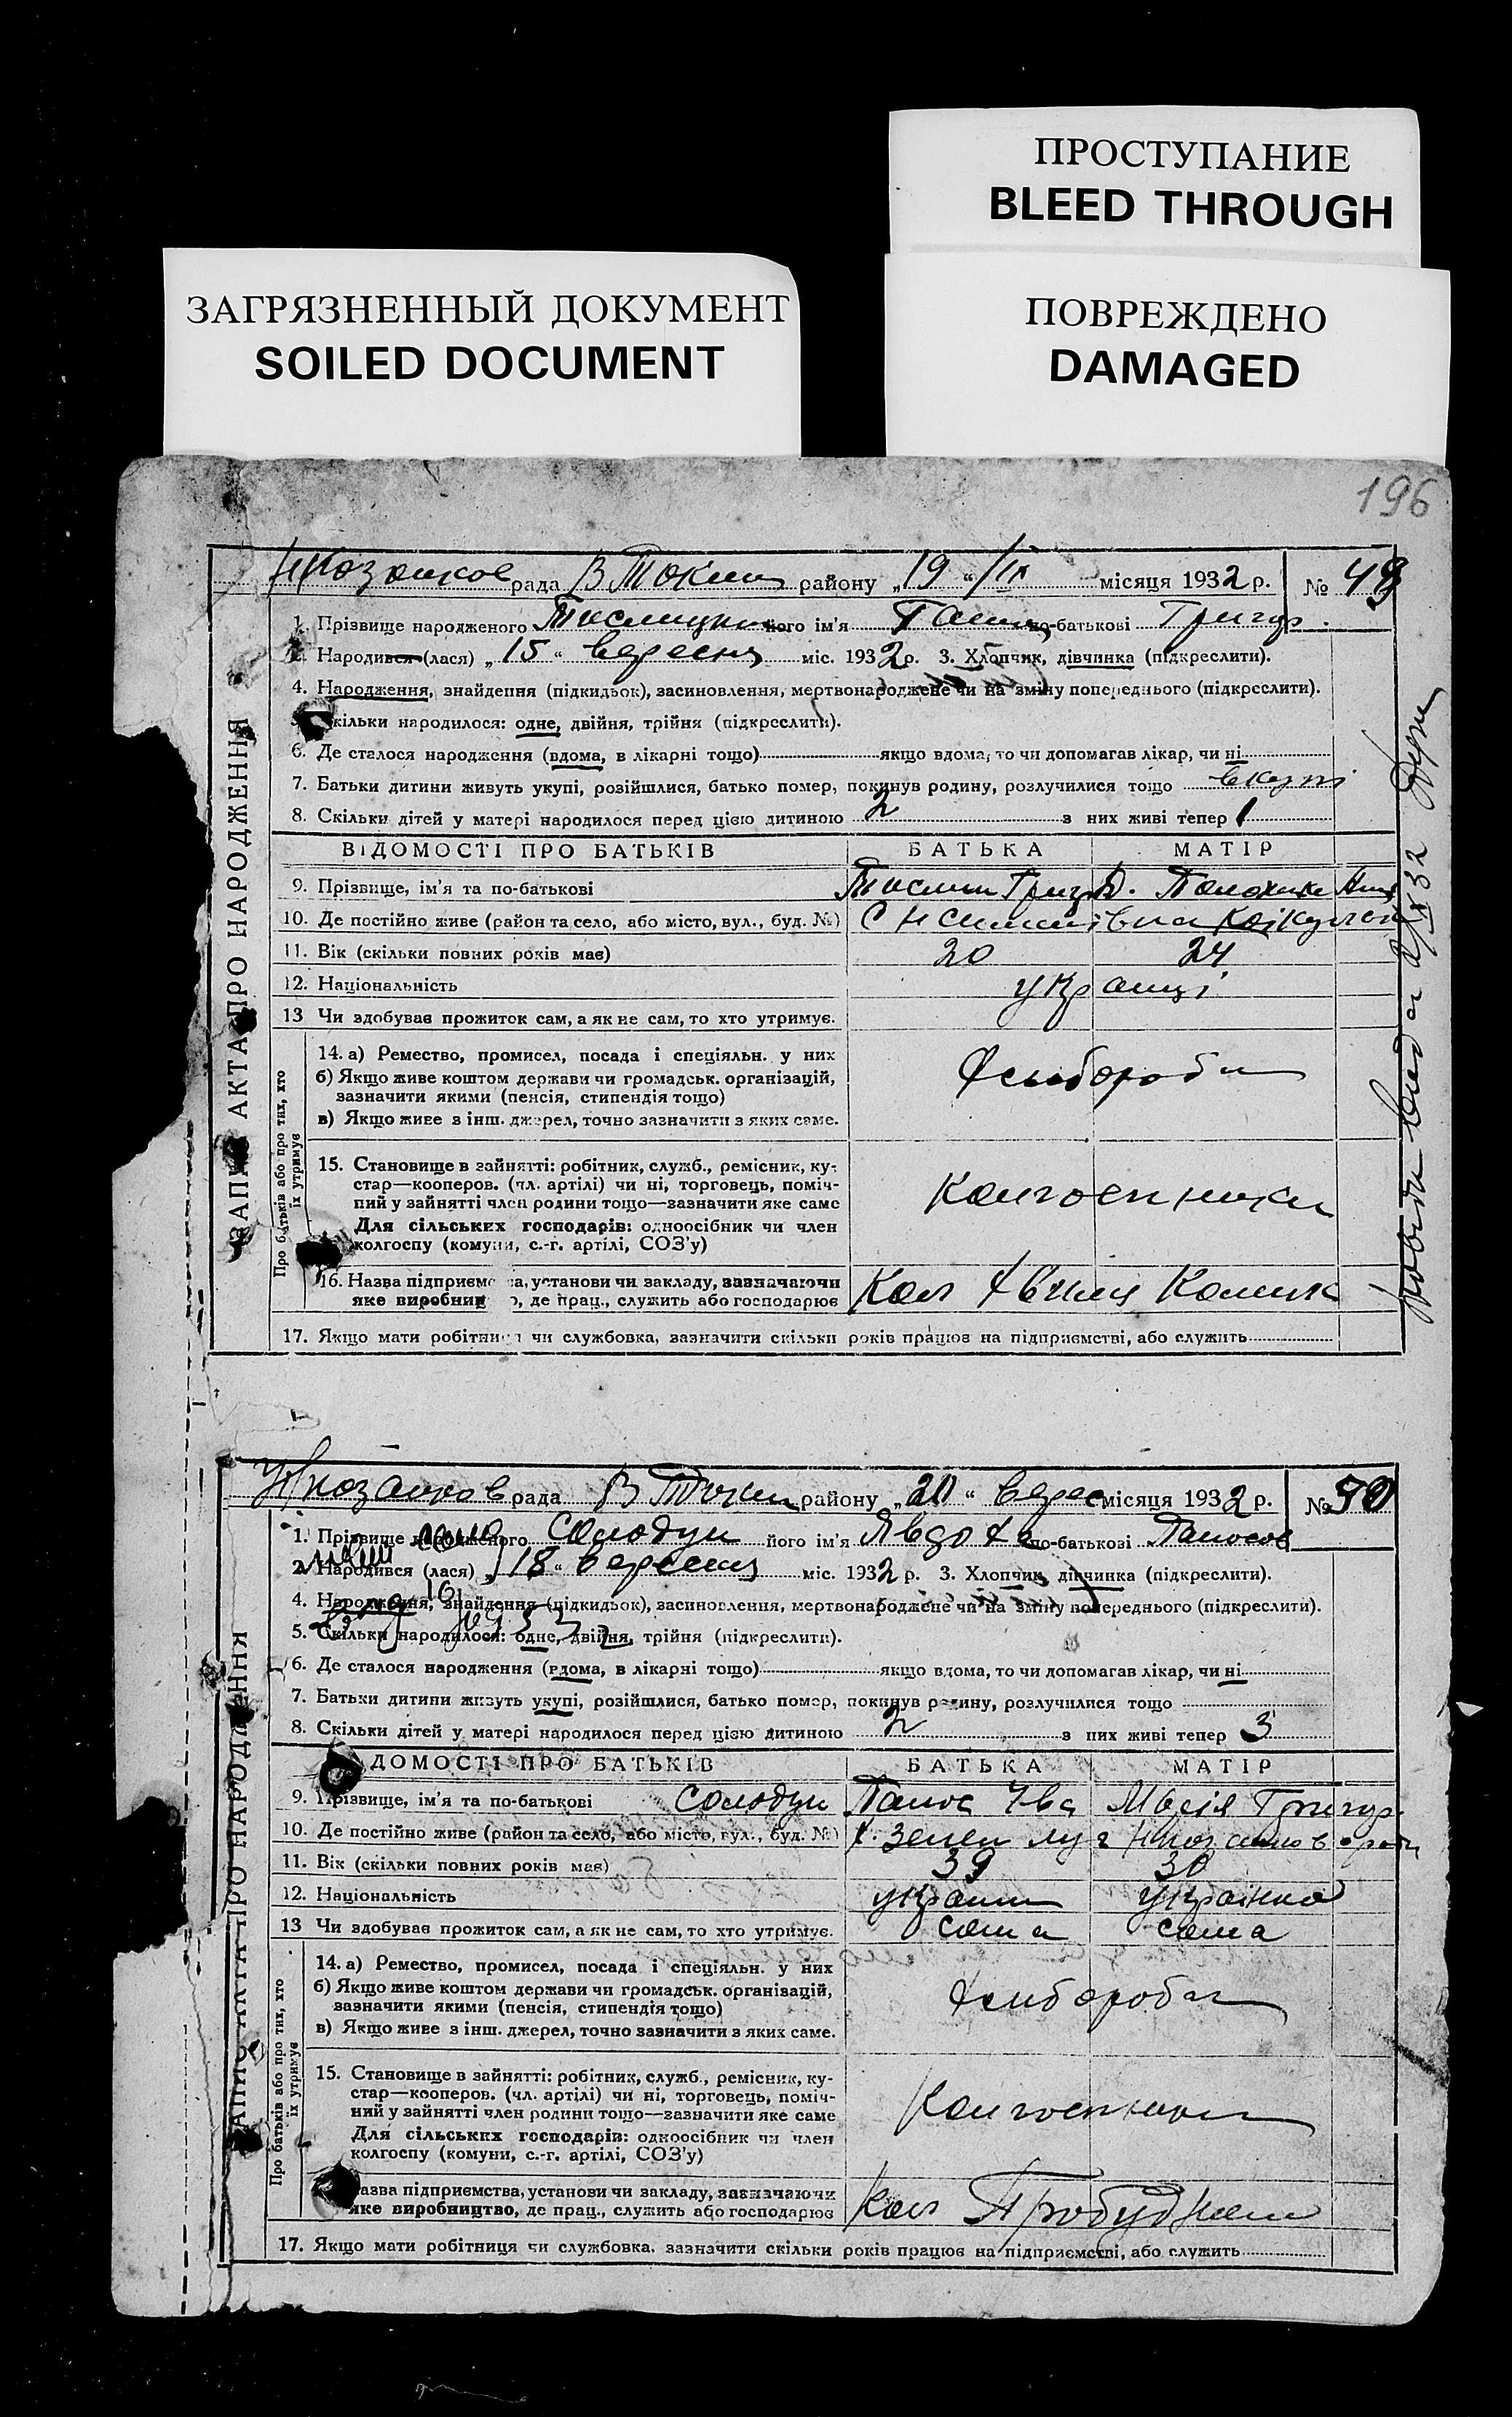 ПРОСТУПАНИЕ
BLEED THROUGH
ЗАГРЯЗНЕННЫЙ ДОКУМЕНТ
SOILED DOCUMENT
ПОВРЕЖДЕНО
DAMAGED
196
рада В Токм району „19“ IX місяця 1932 р. №
1. Прізвище народженого його ім'я по-батькові Григор.
Народився (лася) „15“ вересня міс. 1932 р. 3. Хлопчик, дівчинка (підкреслити).
4. Народження, знайдення (підкидьок), засиновлення, мертвонароджене чи на зміну попереднього (підкреслити).
кільки народилося: одне, двійня, трійня (підкреслити).
6. Де сталося народження (вдома, в лікарні тощо) якщо вдома, то чи допомагав лікар, чи ні
7. Батьки дитини живуть укупі, розійшлися, батько помер, покинув родину, розлучилися тощо вкупі
8. Скільки дітей у матері народилося перед цією дитиною 2 з них живі тепер 1
ЗАПИС АКТА ПРО НАРОДЖЕННЯ
ВІДОМОСТІ ПРО БАТЬКІВ БАТЬКА МАТІР
9. Прізвище, ім'я та по-батькові
10. Де постійно живе (район та село, або місто, вул., буд. №)
11. Вік (скільки повних років має) 20 24
12. Національність українці
13 Чи здобував прожиток сам, а як не сам, то хто утримує.
Про батьків або про тих, хто їх утримує
14. а) Ремество, промисел, посада і спеціяльн. у них
б) Якщо живе коштом держави чи громадськ. організацій,
зазначити якими (пенсія, стипендія тощо)
в) Якщо живе з інш. джерел, точно зазначити з яких саме.
Хлібороби
15. Становище в зайнятті: робітник, служб., ремісник, ку-
стар—кооперов. (чл. артілі) чи ні, торговець, поміч-
ний у зайнятті член родини тощо—зазначити яке саме
Для сільських господарів: одноосібник чи член
колгоспу (комуни, с.-г. артілі, СОЗ'у)
Колгоспники
16. Назва підприємства, установи чи закладу, зазначаючи
яке виробництво, де прац., служить або господарює
Кол
17. Якщо мати робітниця чи службовка, зазначити скільки років працює на підприємстві, або служить
рада В Токм району „20“ верес місяця 1932 р. № 50
1. Прізвище народженого Солодун його ім'я Явдоха по-батькові Панасов
2. Народився (лася) „18“ вересня міс. 1932 р. 3. Хлопчик, дівчинка (підкреслити).
4. Народження, знайдення (підкидьок), засиновлення, мертвонароджене чи на зміну попереднього (підкреслити).
5. Скільки народилося: одне, двійня, трійня (підкреслити).
6. Де сталося народження (вдома, в лікарні тощо) якщо вдома, то чи допомагав лікар, чи ні
7. Батьки дитини живуть укупі, розійшлися, батько помер, покинув родину, розлучилися тощо
8. Скільки дітей у матері народилося перед цією дитиною 2 з них живі тепер 3
ЗАПИС АКТА ПРО НАРОДЖЕННЯ
ДОМОСТІ ПРО БАТЬКІВ БАТЬКА МАТІР
9. Прізвище, ім'я та по-батькові Солодун Панас Ива Марія Григор.
10. Де постійно живе (район та село, або місто, вул., буд. №)
11. Вік (скільки повних років має) 39 30
12. Національність українка
13 Чи здобував прожиток сам, а як не сам, то хто утримує. сама
Про батьків або про тих, хто їх утримує
14. а) Ремество, промисел, посада і спеціяльн. у них
б) Якщо живе коштом держави чи громадськ. організацій,
зазначити якими (пенсія, стипендія тощо)
в) Якщо живе з інш. джерел, точно зазначити з яких саме.
Хлібороби
15. Становище в зайнятті: робітник, служб., ремісник, ку-
стар—кооперов. (чл. артілі) чи ні, торговець, поміч-
ний у зайнятті член родини тощо—зазначити яке саме
Для сільських господарів: одноосібник чи член
колгоспу (комуни, с.-г. артілі, СОЗ'у)
Колгоспники
азва підприємства, установи чи закладу, зазначаючи
яке виробництво, де прац., служить або господарює
Кол
17. Якщо мати робітниця чи службовка, зазначити скільки років працює на підприємстві, або служить